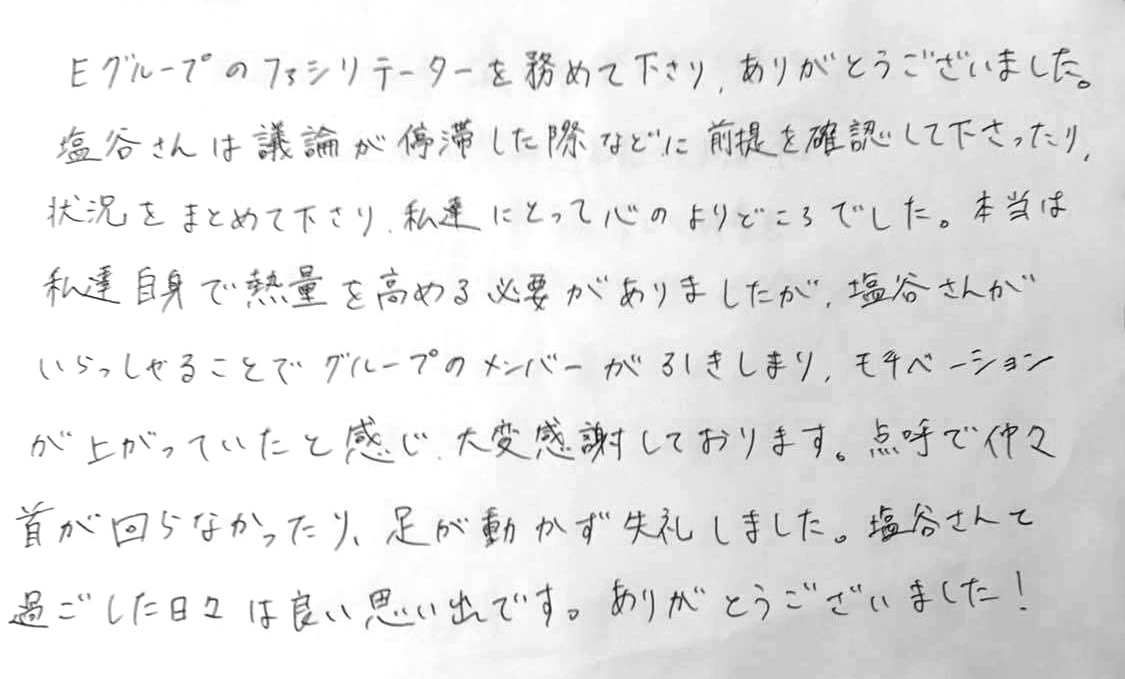 Eグループのファシリテーターを務めて下さり、ありがとうございました。
塩谷さんは議論が停滞した際などに前提を確認して下さったり、
状況をまとめて下さり、私達にとって心のよりどころでした。本当は
私達自身で熱量を高める必要がありましたが、塩谷さんが
いらっしゃることでグループのメンバーが引きしまり、モチベーション
が上がっていたと感じ、大変感謝しております。点呼で仲々
首が回らなかったり、足が動かず失礼しました。塩谷さんと
過ごした日々は良い思い出です。ありがとうございました！